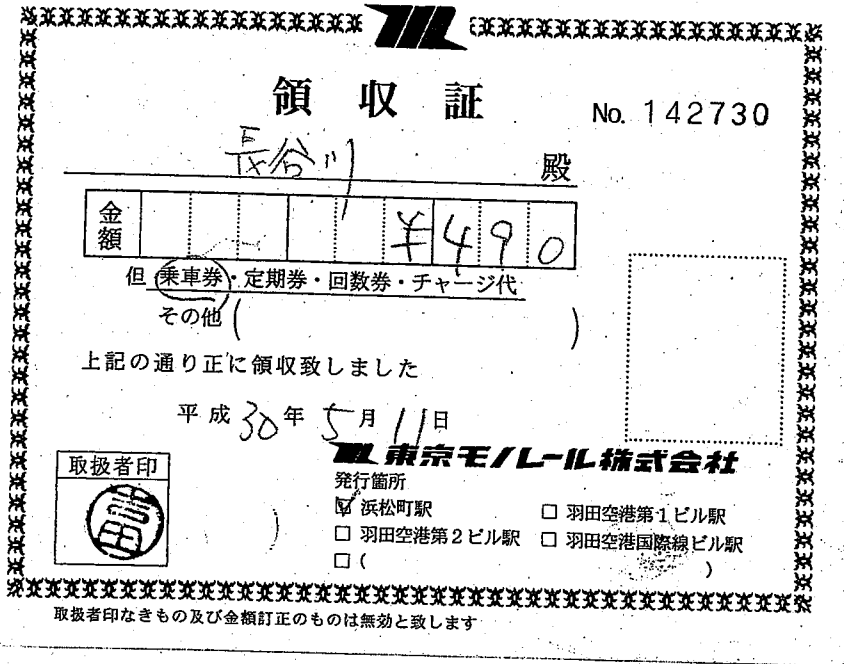 領収証
No. 142730
長谷川 殿
金額 ¥490
但 乗車券・定期券・回数券・チャージ代
その他 ( )
上記の通り正に領収致しました
平成30年5月11日
東京モノレール株式会社
取扱者印
発行箇所
☑ 浜松町駅 □ 羽田空港第1ビル駅
□ 羽田空港第2ビル駅 □ 羽田空港国際線ビル駅
□ ( )
取扱者印なきもの及び金額訂正のものは無効と致します